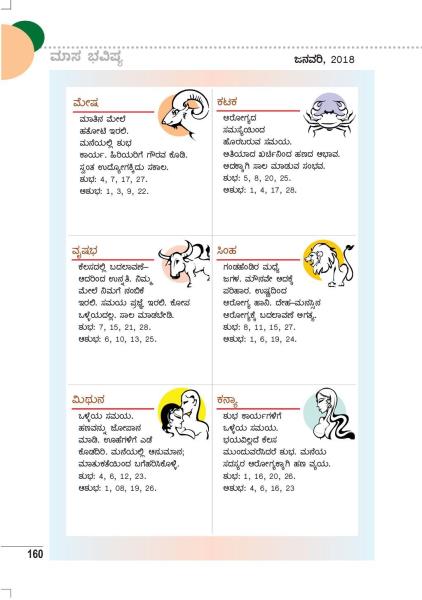 ಮಾಸ ಭವಿಷ್ಯ
ಜನವರಿ, 2018
ಮೇಷ
ಮಾತಿನ ಮೇಲೆ
ಹತೋಟಿ ಇರಲಿ.
ಮನೆಯಲ್ಲಿ ಶುಭ
ಕಾರ್ಯ. ಹಿರಿಯರಿಗೆ ಗೌರವ ಕೊಡಿ.
ಸ್ವಂತ ಉದ್ಯೋಗಕ್ಕಿದು ಸಕಾಲ.
ಶುಭ: 4, 7, 17, 27.
ಆಶುಭ: 1, 3, 9, 22.
ಕಟಕ
ಆರೋಗ್ಯದ
ಸಮಸ್ಯೆಯಿಂದ
ಹೊರಬರುವ ಸಮಯ.
ಅತಿಯಾದ ಖರ್ಚಿನಿಂದ ಹಣದ ಅಭಾವ.
ಅದಕ್ಕಾಗಿ ಸಾಲ ಮಾಡುವ ಸಂಭವ.
ಶುಭ: 5, 8, 20, 25.
ಆಶುಭ: 1, 4, 17, 28.
ವೃಷಭ
ಕೆಲಸದಲ್ಲಿ ಬದಲಾವಣೆ–
ಆದರಿಂದ ಉನ್ನತಿ. ನಿಮ್ಮ
ಮೇಲೆ ನಿಮಗೆ ನಂಬಿಕೆ
ಇರಲಿ. ಸಮಯ ಪ್ರಜ್ಞೆ ಇರಲಿ. ಕೋಪ
ಒಳ್ಳೆಯದಲ್ಲ. ಸಾಲ ಮಾಡಬೇಡಿ.
ಶುಭ: 7, 15, 21, 28.
ಆಶುಭ: 6, 10, 13, 25.
ಸಿಂಹ
ಗಂಡಹೆಂಡಿರ ಮಧ್ಯೆ
ಜಗಳ. ಮೌನವೇ ಅದಕ್ಕೆ
ಪರಿಹಾರ. ಉಷ್ಣದಿಂದ
ಆರೋಗ್ಯ ಹಾನಿ. ದೇಹ–ಮನಸ್ಸಿನ
ಆರೋಗ್ಯಕ್ಕೆ ಬದಲಾವಣೆ ಅಗತ್ಯ.
ಶುಭ: 8, 11, 15, 27.
ಆಶುಭ: 1, 6, 19, 24.
ಮಿಥುನ
ಒಳ್ಳೆಯ ಸಮಯ.
ಹಣವನ್ನು ಜೋಪಾನ
ಮಾಡಿ. ಊಹೆಗಳಿಗೆ ಎಡೆ
ಕೊಡದಿರಿ. ಮನೆಯಲ್ಲಿ ಅನುಮಾನ;
ಮಾತುಕತೆಯಿಂದ ಬಗೆಹರಿಸಿಕೊಳ್ಳಿ.
ಶುಭ: 4, 6, 12, 23.
ಆಶುಭ: 1, 08, 19, 26.
ಕನ್ಯಾ
ಶುಭ ಕಾರ್ಯಗಳಿಗೆ
ಒಳ್ಳೆಯ ಸಮಯ.
ಭಯವಿಲ್ಲದೆ ಕೆಲಸ
ಮುಂದುವರೆಸಿದರೆ ಶುಭ. ಮನೆಯ
ಸದಸ್ಯರ ಆರೋಗ್ಯಕ್ಕಾಗಿ ಹಣ ವ್ಯಯ.
ಶುಭ: 1, 16, 20, 26.
ಆಶುಭ: 4, 6, 16, 23
160